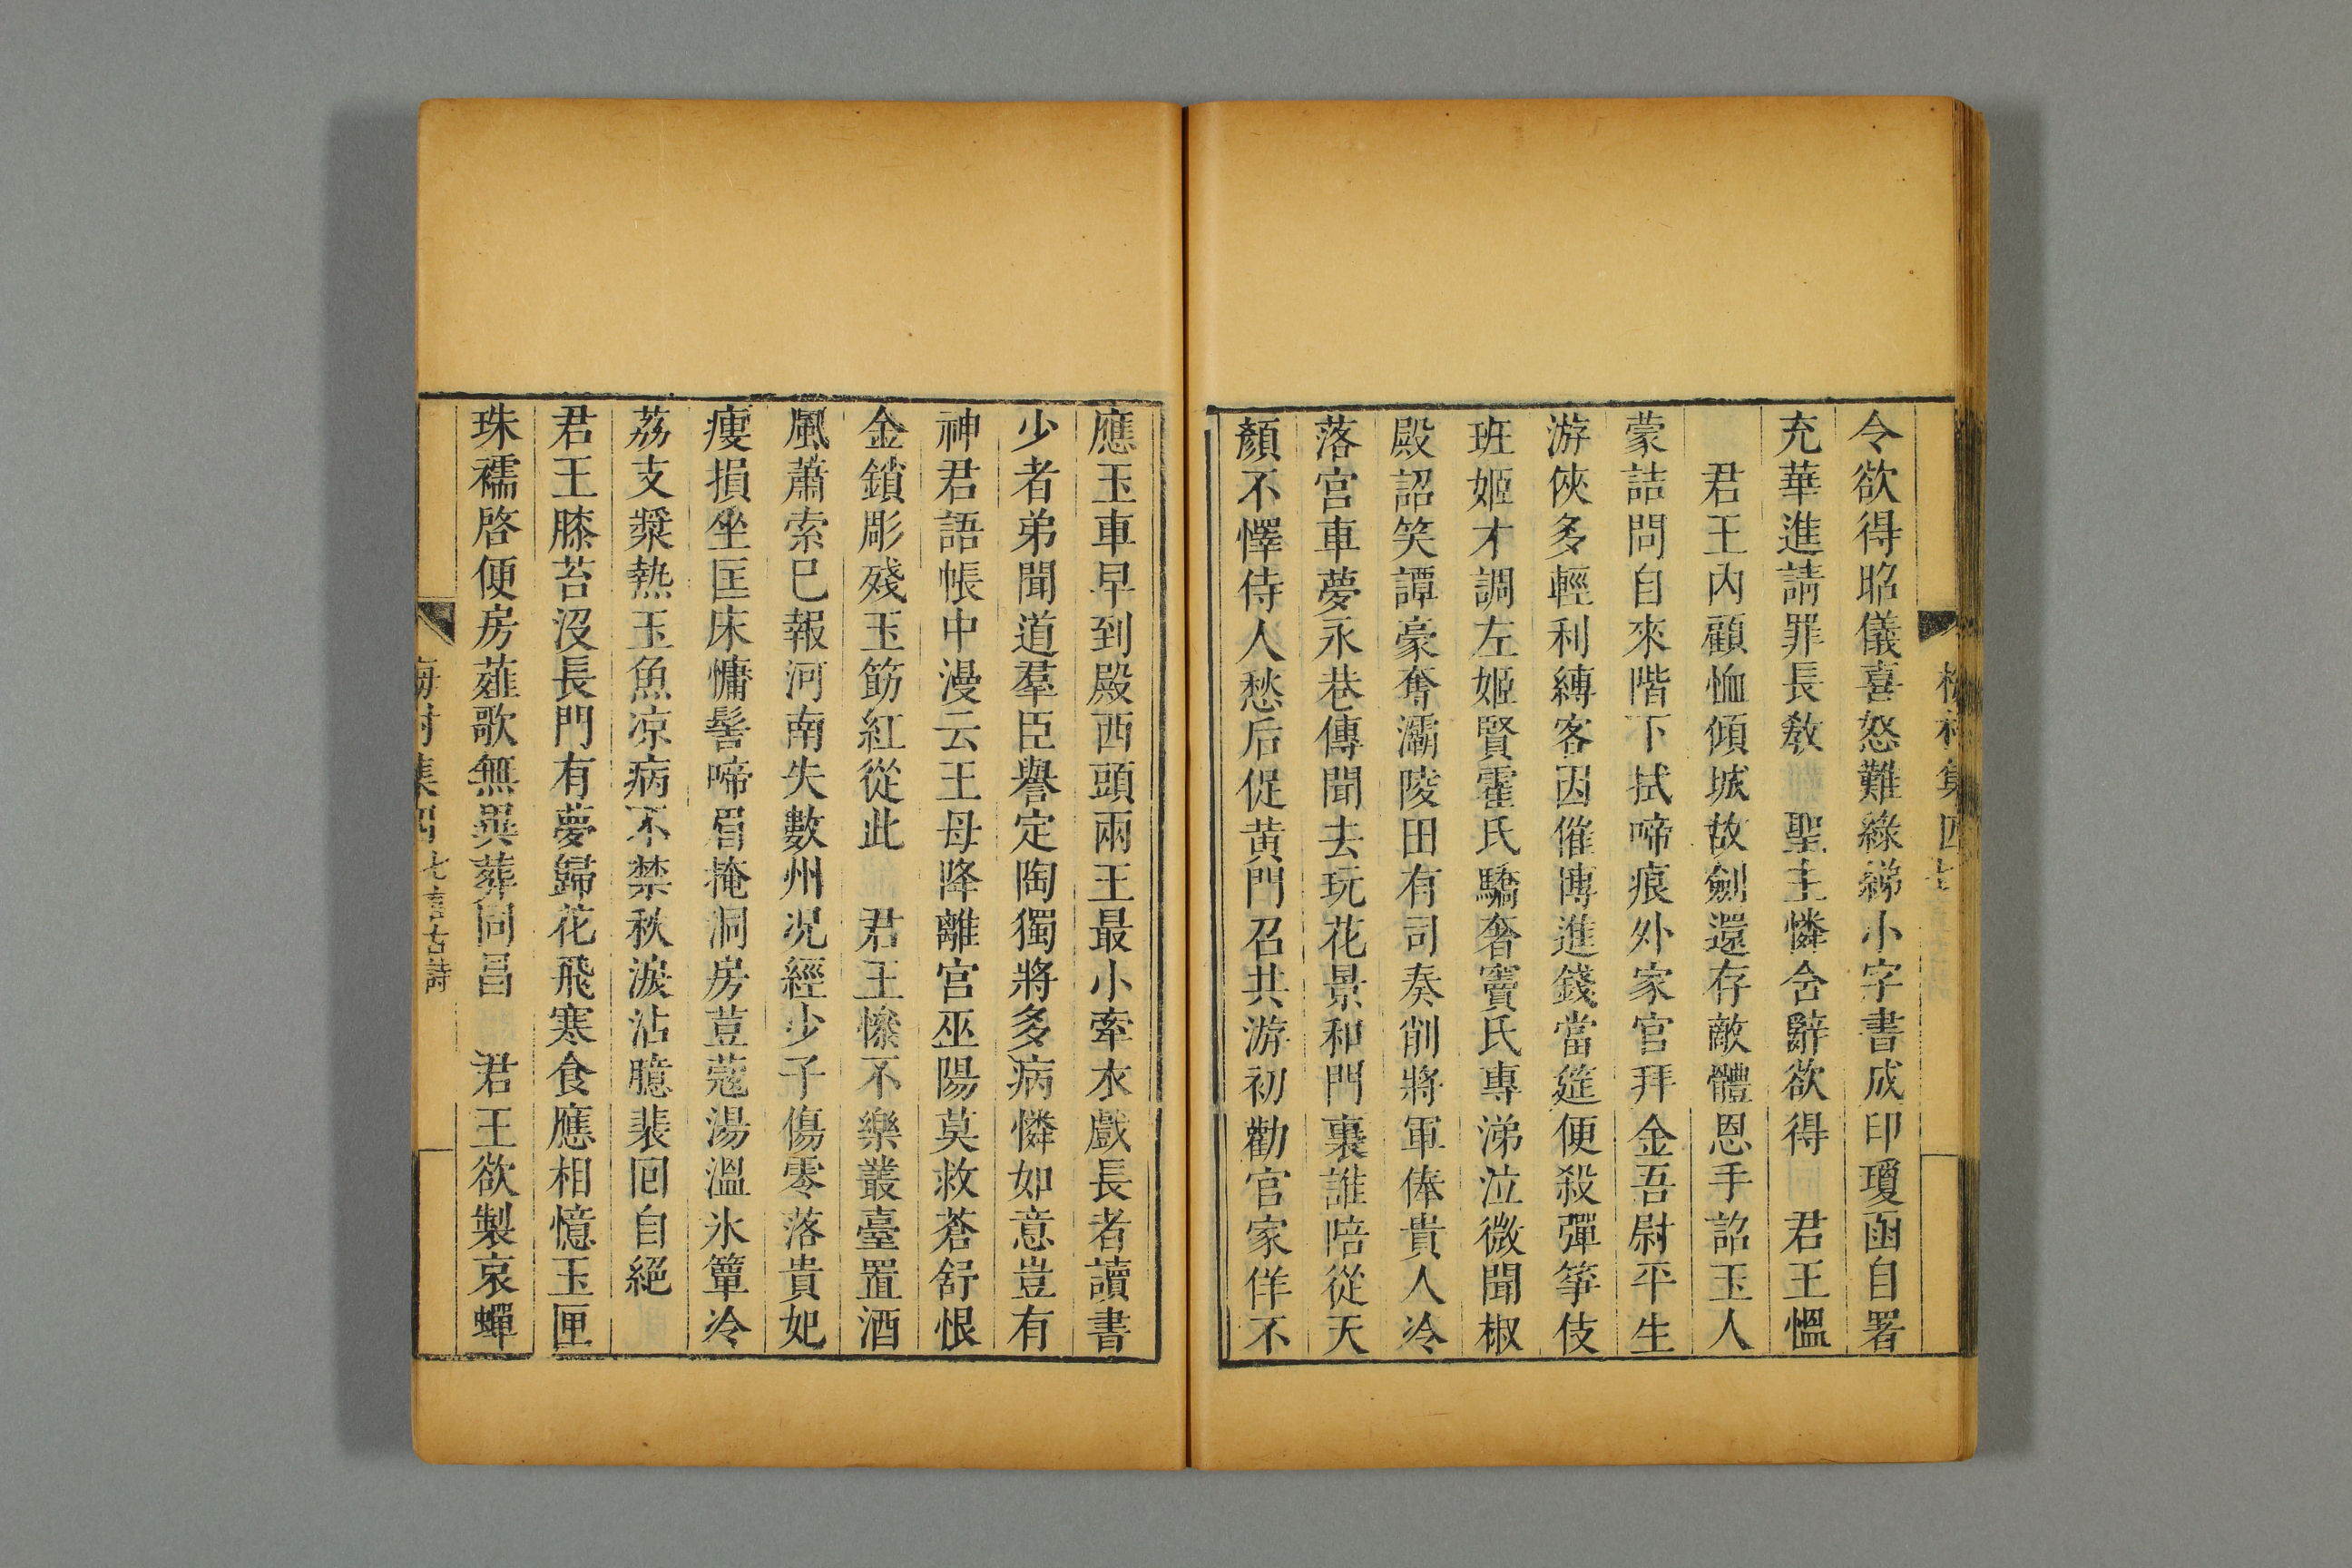 令欲得昭儀喜怒難綠綈小字書成印瓊函自署
充華進請罪長教　聖主憐含辭欲得　君王慍
君王內顧恤傾城故劍還存敵體恩手詔玉人
蒙詰問自來階下拭啼痕外家官拜金吾尉平生
游俠多輕利縛客因催博進錢當筵便殺彈箏伎
班姬才調左姬賢霍氏驕奢竇氏專涕泣微聞椒
殿詔笑譚豪奪灞陵田有司奏削將軍俸貴人冷
落宮車夢永巷傳聞去玩花景和門裏誰陪從天
顏不懌侍人愁后促黃門召共游初勸官家佯不
應玉車早到殿西頭兩王最小牽衣戲長者讀書
少者弟聞道羣臣譽定陶獨將多病憐如意豈有
神君語帳中漫云王母降離宮巫陽莫救蒼舒恨
金鎖彫殘玉筯紅從此　君王慘不樂叢臺置酒
風蕭索巳報河南失數州况經少子傷零落貴妃
瘦損坐匡床慵髻啼眉掩洞房荳蔻湯溫氷簟冷
荔支漿熱玉魚凉病不禁秋淚沾臆裴回自絕
君王膝苔沒長門有夢歸花飛寒食應相憶玉匣
珠襦啓便房薤歌無異葬同昌　君王欲製哀蟬
梅村集四 七言古詩